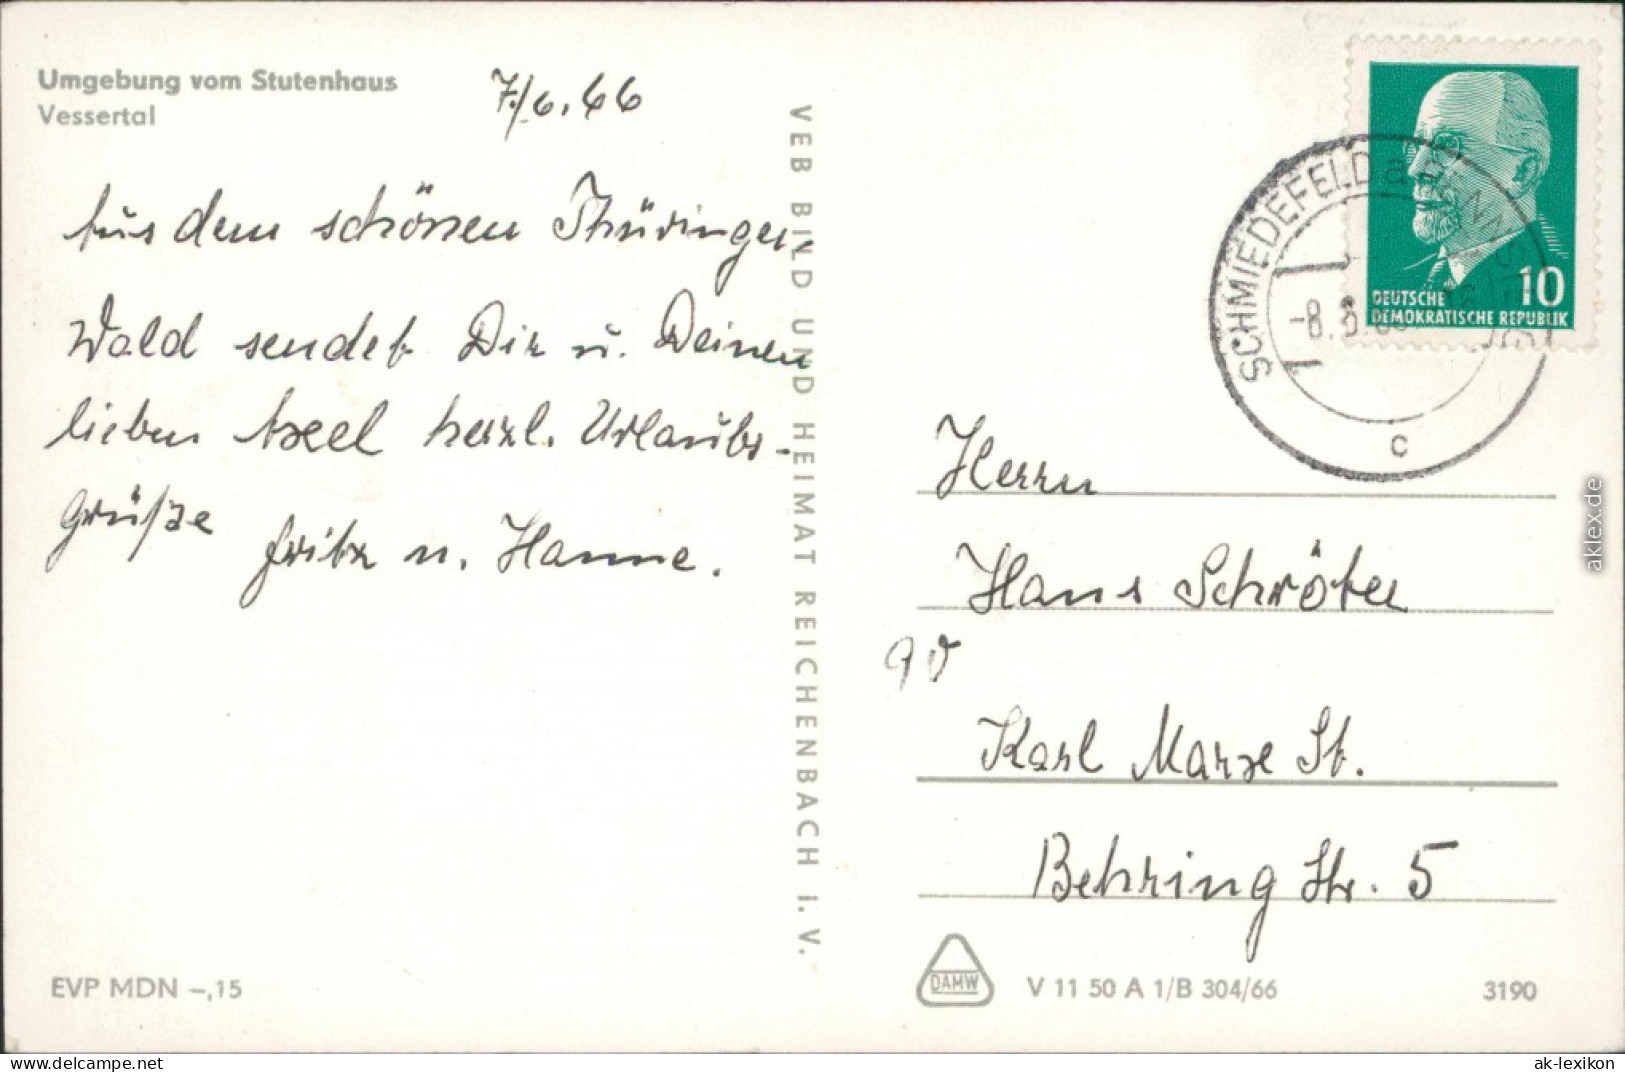 Umgebung vom Stutenhaus
Vessertal
7/6.66
Aus dem schönen Thüringer-
Wald sendet Dir u. Deinen
lieben Axel herzl. Urlaubs-
Grüße
Fritz u. Hanne.
EVP MDN –,15
VEB BILD UND HEIMAT REICHENBACH i. V.
DEUTSCHE
DEMOKRATISCHE REPUBLIK
10
SCHMIEDEFELD a
-8.
c
Herrn
Hans Schröter
90
Karl Marx St.
Behring Str. 5
DAMW
V 11 50 A 1/B 304/66
3190
aklex.de
www.delcampe.net
ak-lexikon